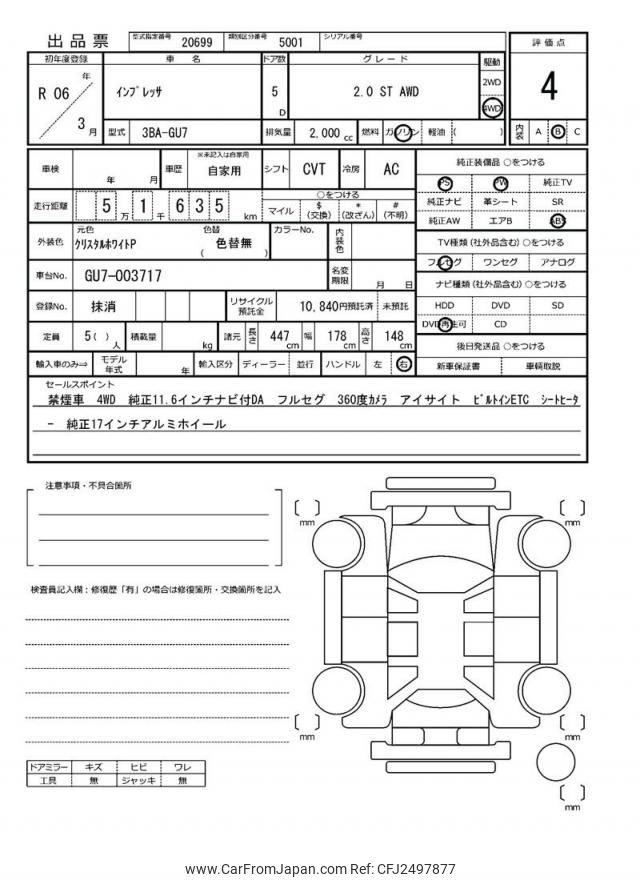 出品票
型式指定番号 20699 類別区分番号 5001 シリアル番号
評価点
4
初年度登録 車名 ドア数 グレード 駆動
R 06 年 3 月 ｲﾝﾌﾟﾚｯｻ 5 D 2.0 ST AWD 2WD 4WD
型式 3BA-GU7 排気量 2,000 cc 燃料 ガソリン 軽油 ( ) 内装 A B C
車検 年 月 車歴 ※未記入は自家用 自家用 シフト CVT 冷房 AC
純正装備品 ○をつける
PS PW 純正TV
純正ナビ 革シート SR
純正AW エアB ABS
走行距離 5 万 1 千 6 3 5 km
○をつける
マイル $ (交換) * (改ざん) # (不明)
外装色 元色 ｸﾘｽﾀﾙﾎﾜｲﾄP 色替 ( 色替無 ) カラーNo. 内装色
TV種類 (社外品含む) ○をつける
フルセグ ワンセグ アナログ
車台No. GU7-003717 名変期限 月 日
ナビ種類 (社外品含む) ○をつける
HDD DVD SD
DVD再生可 CD
登録No. 抹消 リサイクル預託金 10,840 円預託済 未預託
定員 5 ( ) 人 積載量 kg 諸元 長さ 447 cm 幅 178 cm 高さ 148 cm
後日発送品 ○をつける
新車保証書 車輌取説
輸入車のみ⇒ モデル年式 年 輸入区分 ディーラー 並行 ハンドル 左 右
セールスポイント
禁煙車 4WD 純正11.6インチナビ付DA フルセグ 360度ｶﾒﾗ アイサイト ﾋﾞﾙﾄｲﾝETC ｼｰﾄﾋｰﾀ
- 純正17インチアルミホイール
注意事項・不具合箇所
検査員記入欄：修復歴「有」の場合は修復箇所・交換箇所を記入
[ ] mm
[ ] mm
[ ] mm
[ ] mm
[ ] mm
ドアミラー キズ ヒビ ワレ
工具 無 ジャッキ 無
www.CarFromJapan.com Ref: CFJ2497877